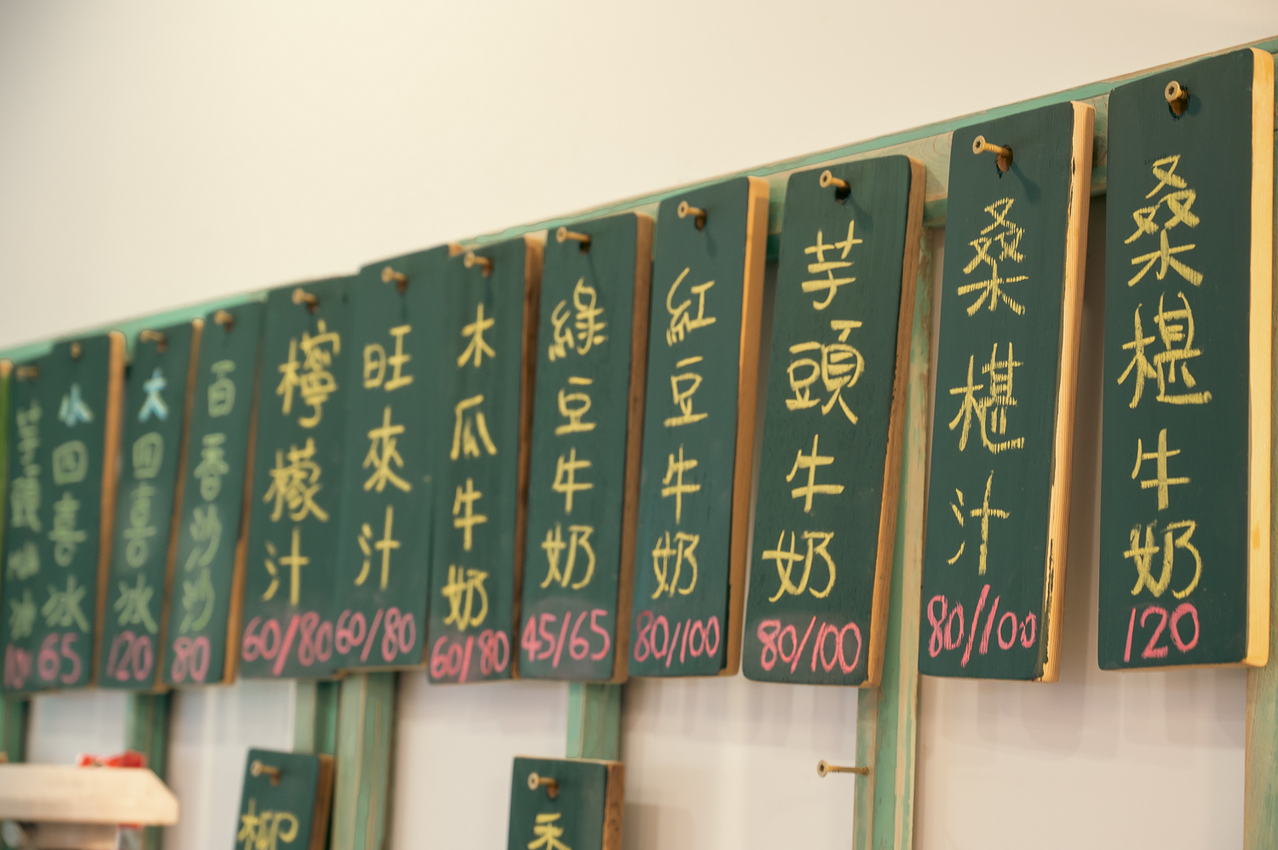 桑椹牛奶
120
桑椹汁
80/100
芋頭牛奶
80/100
紅豆牛奶
80/100
綠豆牛奶
45/65
木瓜牛奶
60/80
旺來汁
60/80
檸檬汁
60/80
百香
80
大四喜冰
120
小四喜冰
65
芋頭
柳